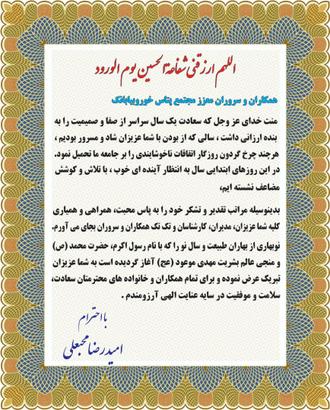 اللهم ارزقنی شفاعة الحسین یوم الورود
همکاران و سروران معزز مجتمع پتاس خوروبیابانک
منت خدای عز وجل که سعادت یک سال سراسر از صفا و صمیمیت را به
بنده ارزانی داشت ، سالی که از بودن با شما عزیزان شاد و مسرور بودیم ،
هرچند چرخ گردون روزگار اتفاقات ناخوشایندی را بر جامعه ما تحمیل نمود.
در این روزهای ابتدایی سال به انتظار آینده ای خوب ، با تلاش و کوشش
مضاعف نشسته ایم.
بدینوسیله مراتب تقدیر و تشکر خود را به پاس محبت، همراهی و همیاری
کلیه شما عزیزان، مدیران، کارشناسان و تک تک همکاران و سروران بجای می آورم.
نوبهاری از بهاران طبیعت و سال نو را که با نام رسول اکرم، حضرت محمد (ص)
و منجی عالم بشریت مهدی موعود (عج) آغاز گردیده است به شما عزیزان
تبریک عرض نموده و برای تمام همکاران و خانواده های محترمتان سعادت،
سلامت و موفقیت در سایه عنایت الهی آرزومندم .
با احترام
امیدرضا محبعلی